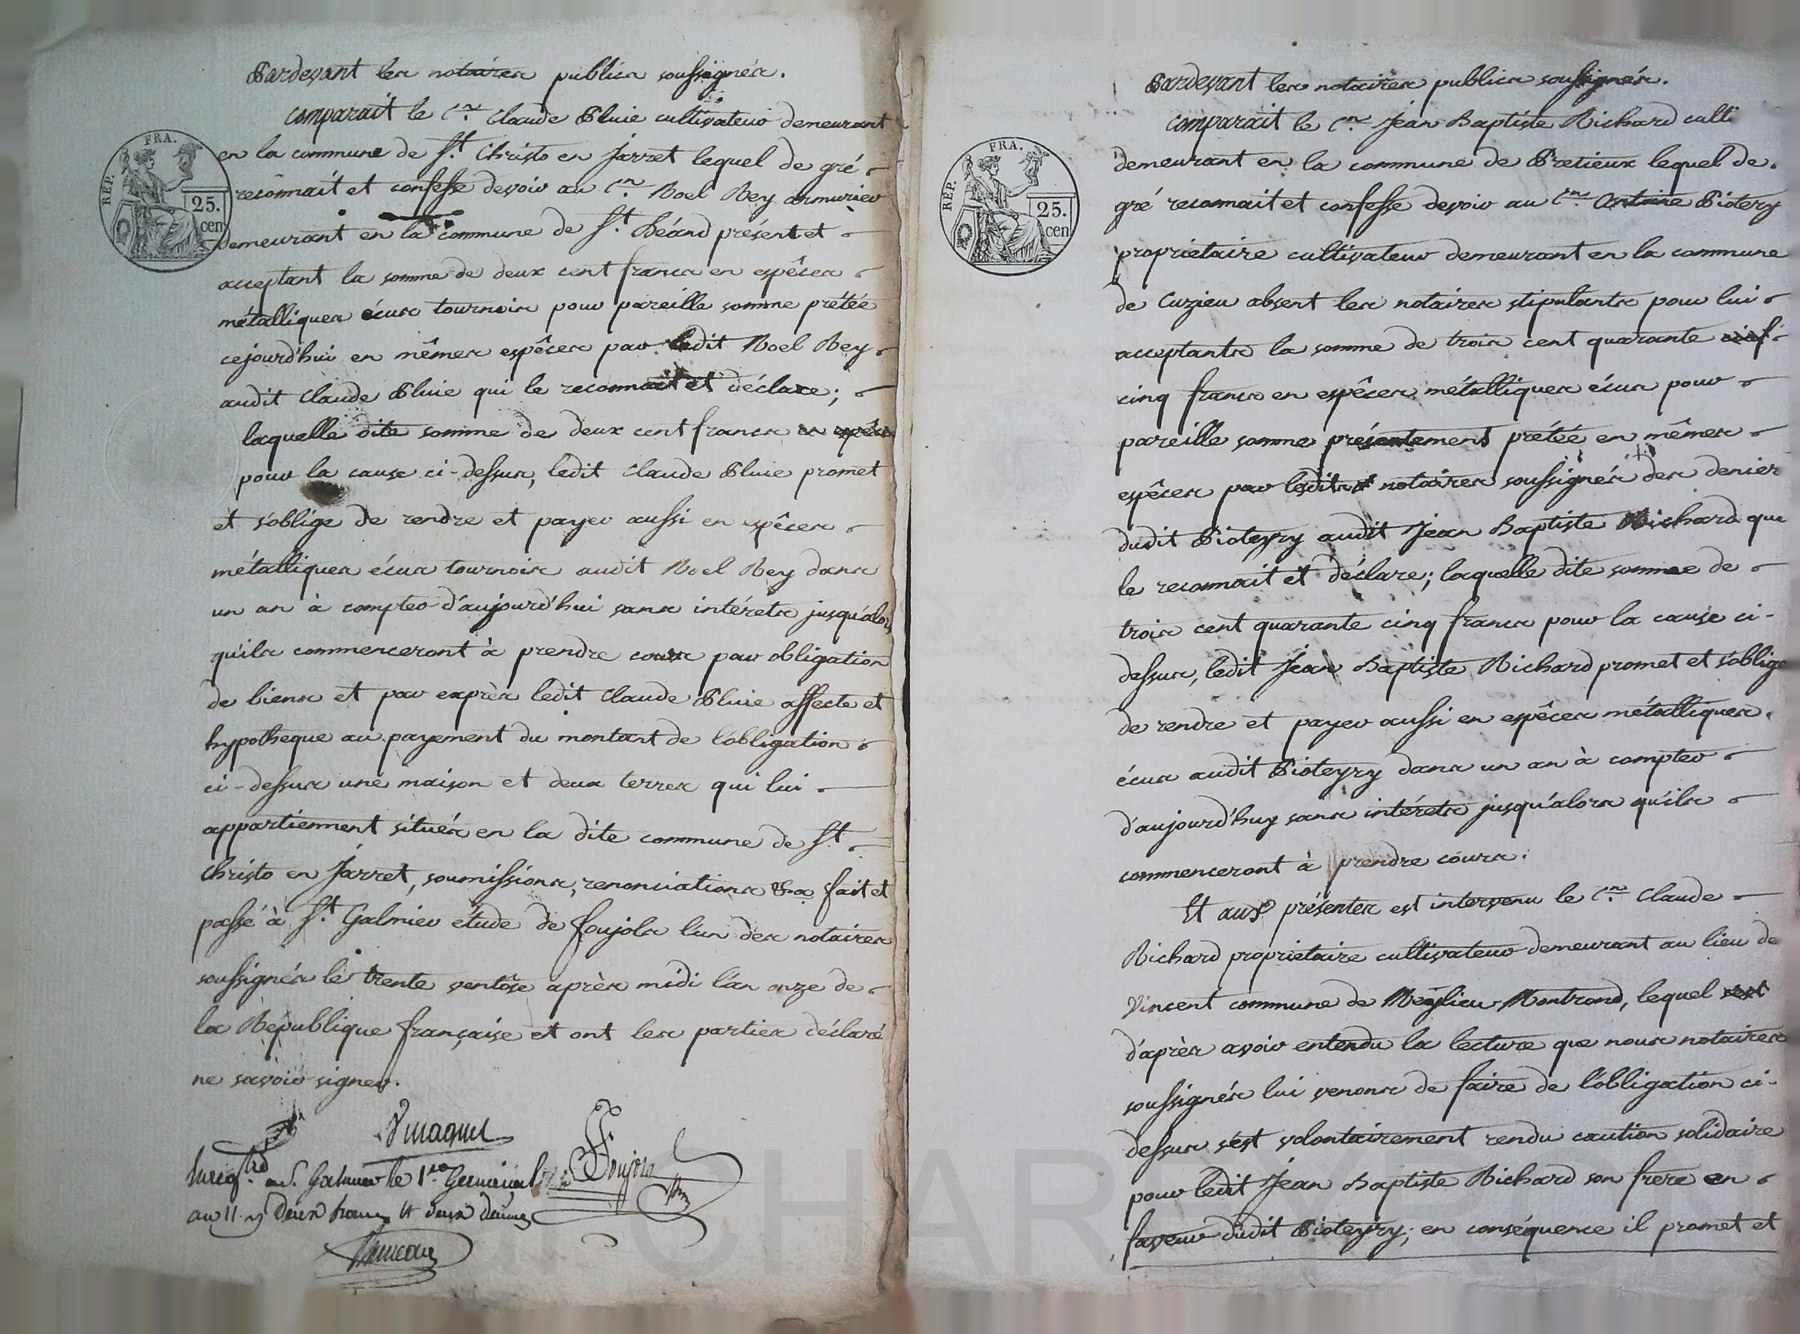 Pardevant les notaires publics soussignés.
comparait le Cen. Claude Pluie cultivateur demeurant
en la commune de St. Christo en Jarret lequel de gré
reconnait et confesse devoir au Cen. Noel Rey armurier
demeurant en la commune de St. Héand présent et
acceptant la somme de deux cent francs en espêces
métalliques écus tournois pour pareille somme prétée
cejourd'hui en mêmes espêces par ledit Noel Rey
audit Claude Pluie qui le reconnait et déclare;
laquelle dite somme de deux cent francs
pour la cause ci-dessus, ledit Claude Pluie promet
et s'oblige de rendre et payer aussi en espêces
métalliques écus tournois audit Noel Rey dans
un an à compter d'aujourd'hui sans intérets jusqu'alors
qu'ils commenceront à prendre cours par obligation
de biens et par exprès ledit Claude Pluie affecte et
hypotheque au payement du montant de l'obligation
ci-dessus une maison et deux terres qui lui
appartiennent situés en la dite commune de St.
Christo en Jarret, soumissions, renonciations &a. fait et
passé à St. Galmier étude de Foujols l'un des notaires
soussignés le trente ventôse après midi l'an onze de
la République française et ont les parties déclaré
ne savoir signer.
REP. FRA.
25.
cen
le 1er Germinal
deux francs deux décimes
Pardevant les notaires publics soussignés.
comparait le Cen. Jean Baptiste Richard culti
demeurant en la commune de Pretieux lequel de
gré reconnait et confesse devoir au Cen. Antoine Pioteyry
propriétaire cultivateur demeurant en la commune
de Cuzieu absent les notaires stipulants pour lui
acceptants la somme de trois cent quarante
cinq francs en espêces métalliques écus pour
pareille somme présentement prétée en mêmes
espêces par lesdits notaires soussignés des denier
dudit Pioteyry audit Jean Baptiste Richard que
le reconnait et déclare; laquelle dite somme de
trois cent quarante cinq francs pour la cause ci-
dessus, ledit Jean Baptiste Richard promet et s'oblige
de rendre et payer aussi en espêces métalliques
écus audit Pioteyry dans un an à compter
d'aujourd'huy sans intérets jusqu'alors qu'ils
commenceront à prendre cours.
Et aux présentes est intervenu le Cen. Claude
Richard propriétaire cultivateur demeurant au lieu de
Vincent commune de Meylieu-Montrond, lequel
d'après avoir entendu la lecture que nous notaires
soussignés lui venons de faire de l'obligation ci-
dessus s'est volontairement rendu caution solidaire
pour ledit Jean Baptiste Richard son frere en
faveur dudit Pioteyry; en conséquence il promet et
REP. FRA.
25.
cen